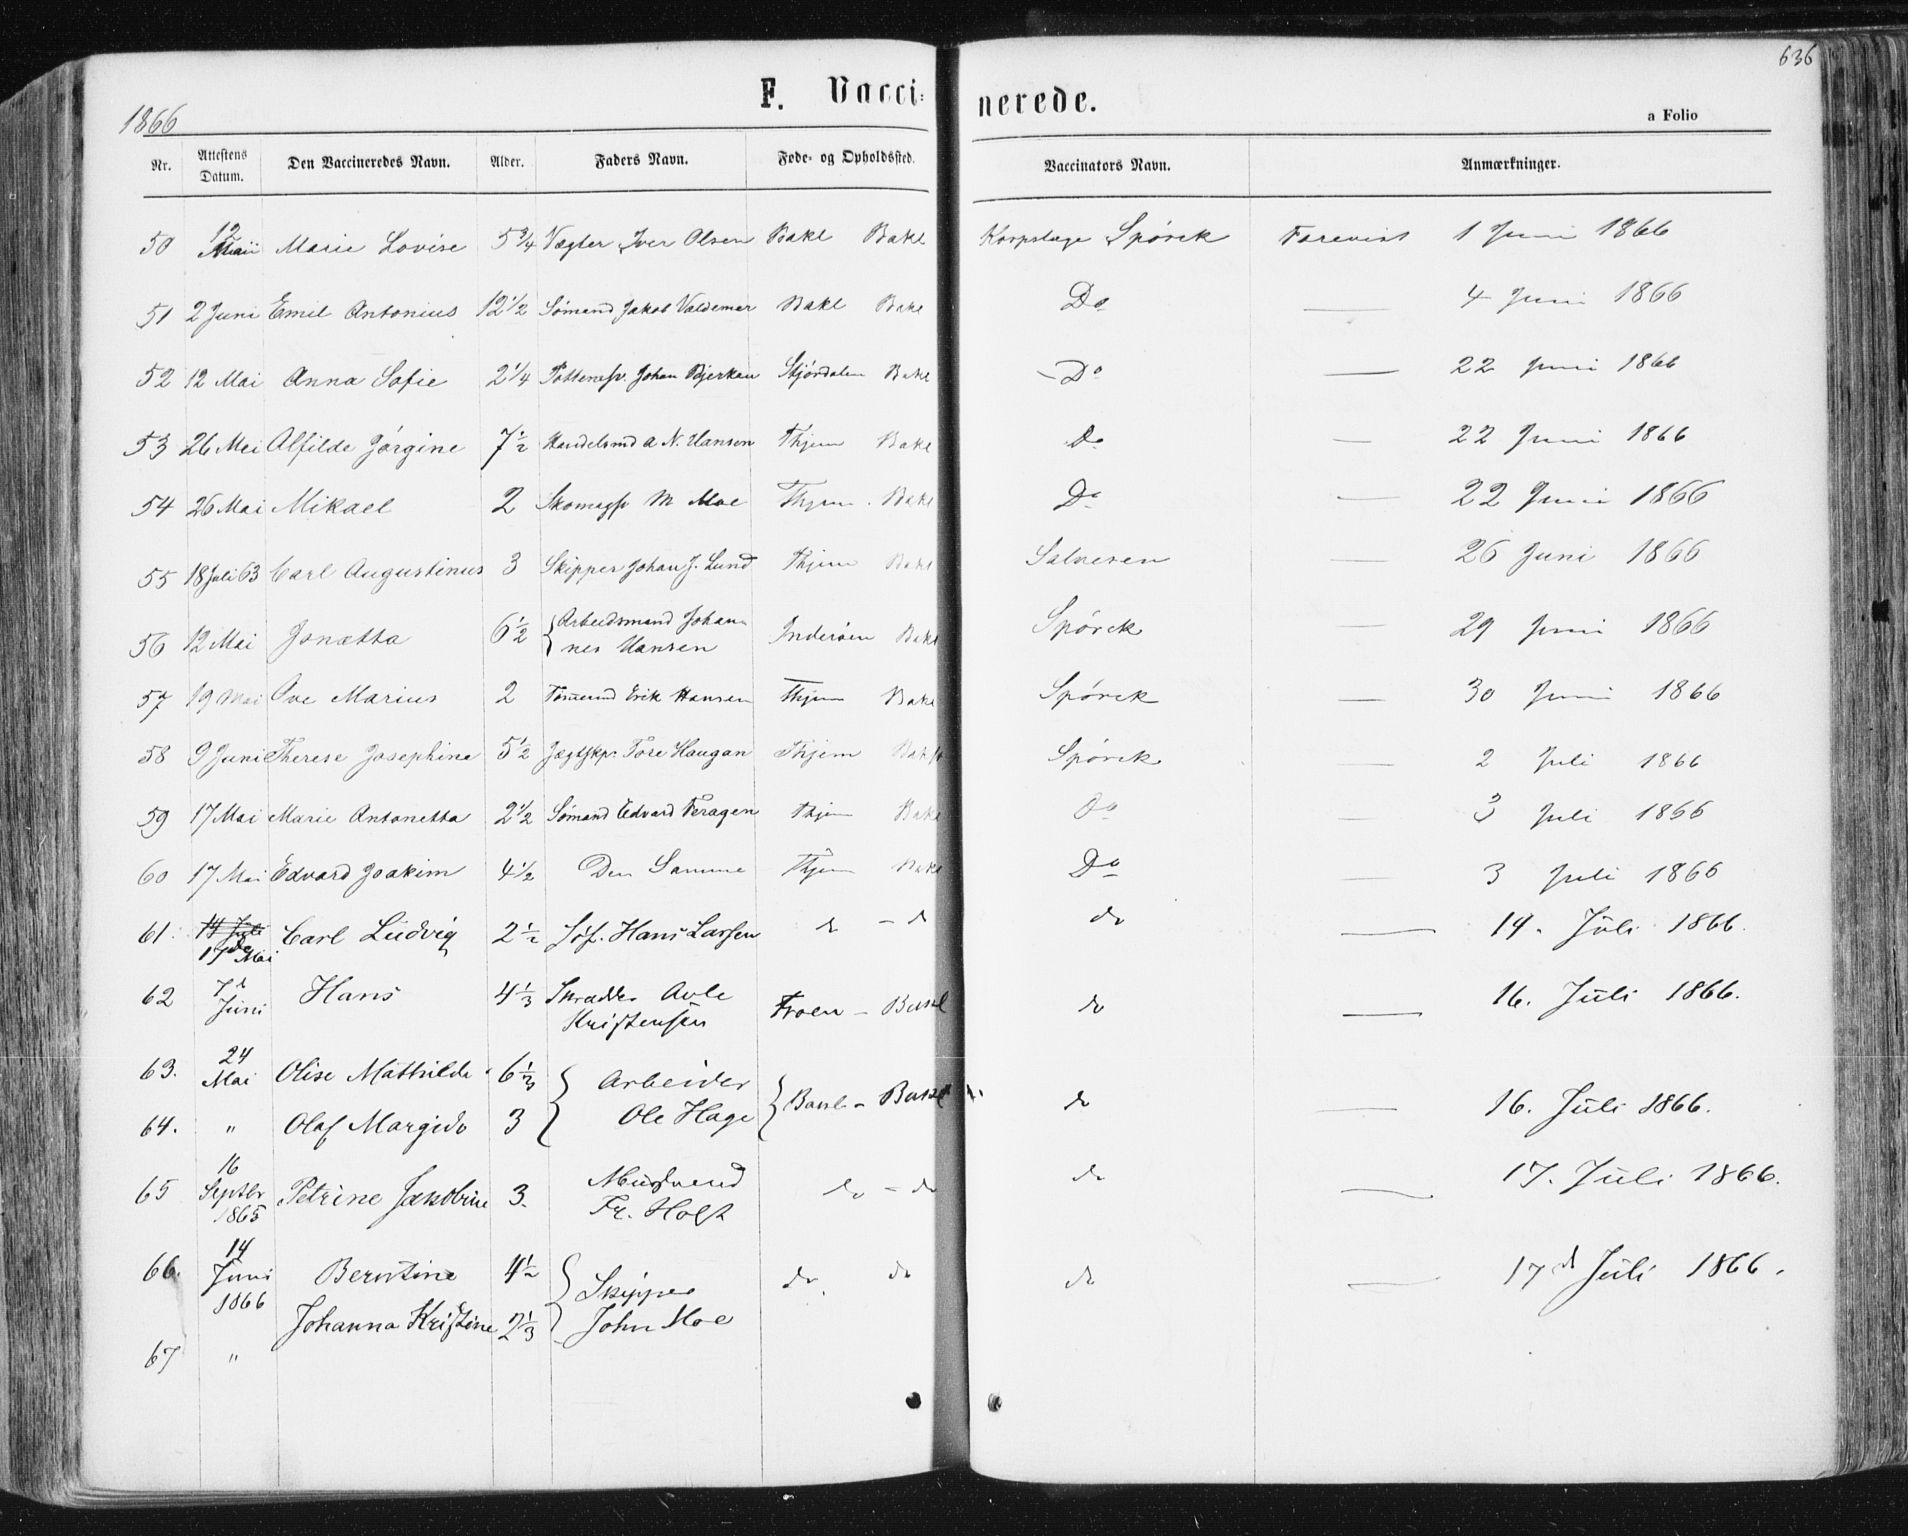 636
1866
F. Vacci: nerede.
a Folio
Nr. Attestens Datum. Den Vaccineredes Navn. Alder. Faders Navn. Føde- og Opholdssted. Vaccinators Navn. Anmærkninger.
50 12 Maii Marie Lovise 5 3/4 Vægter Iver Olsen Bakl Bakl Korpslæge Spørck Forevist 1 Juni 1866
51 2 Juni Emil Antonius 12 1/2 Sømand Jakob Valdemar Bakl Bakl Do — 4 Juni 1866
52 12 Mai Anna Sofie 2 1/4 Johan Bjerkan Stjørdalen Bakl Do — 22 Juni 1866
53 26 Mai Alfilde Jørgine 7 1/2 Handelsmd A N. Hansen Thjem Bakl Do — 22 Juni 1866
54 26 Mai Mikael 2 Skomagsv M Moe Thjem Bakl Do — 22 Juni 1866
55 18 Juli 63 Carl Augustinus 3 Skipper Johan J. Lund Thjem Bakl Salvesen — 26 Juni 1866
56 12 Mai Jonetta 6 1/2 { Arbeidsmand Johan-
nes Hansen Inderøen Bakl Spørck — 29 Juni 1866
57 19 Mai Ove Marius 2 Tømmermd Erik Hansen Thjem Bakl Spørck — 30 Juni 1866
58 9 Juni Therese Josephine 5 1/2 Jægtskpr. Tore Haugan Thjem Bakl Spørck — 2 Juli 1866
59 17 Mai Marie Antonetta 2 1/2 Sømand Edvard Feragen Thjem Bakl Do — 3 Juli 1866
60 17 Mai Edvard Joakim 4 1/2 Den Samme Thjem Bakl Do — 3 Juli 1866
61. 14 Juli
17de Mai Carl Ludvig 2 1/2 Søf. Hans Larsen do - do do — 14. Juli 1866.
62 7d Juni Hans 4 1/3 Skrædder
Kristensen — Bakl do — 16. Juli 1866.
63. 24 Mai Olise Mathilde 6 1/3 { Arbeider
64. " Olaf Margido 3 Ole Hage } Bakl - Bakl do — 16. Juli 1866.
65 16 Septbr 1865 Petrine Jakobine 3. Murs
Fr. Holst do - do do — 17. Juli 1866.
66. 14 Juni 1866 Berntine 4 1/2 { Skipper do. do do — 17d Juli 1866.
Johanna Kristine 2 1/3 John Moe
67 "